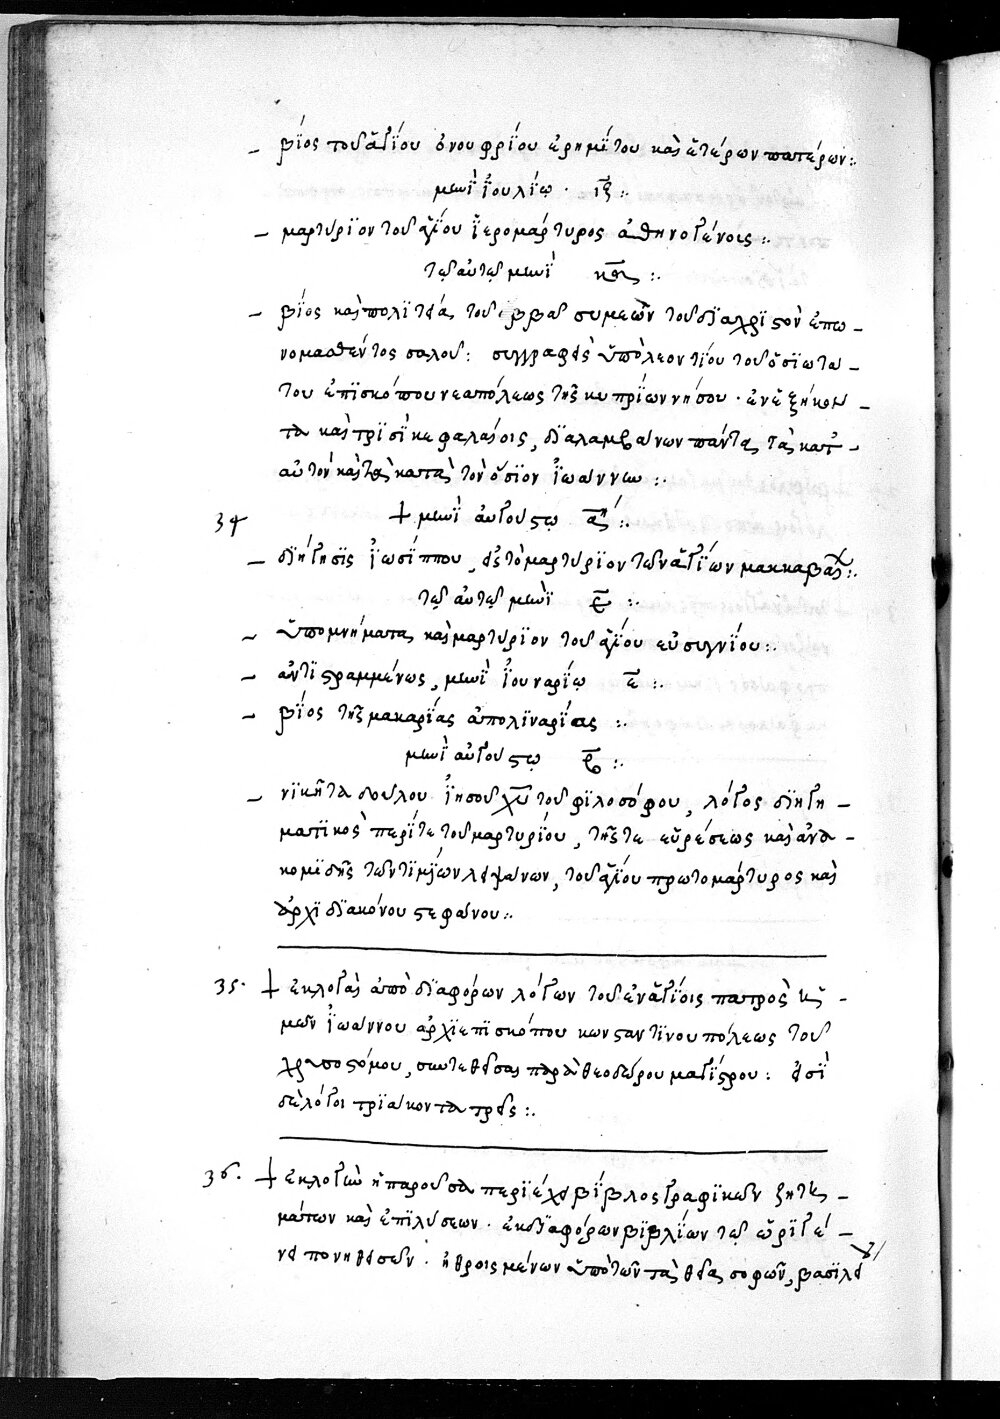 – βΐος τοῦ ἁγΐου ὀνουφρΐου ἐρημΐτου καὶ ἑτέρων πατέρων :.
μηνῒ ἰουλΐω · ιξ :.
– μαρτυρΐον τοῦ ἁγΐου ἱερομάρτυρος ἀθηνογένοις :.
τῶ αὐτῶ μηνῒ :.
– βΐος καὶ πολϊτεία τοῦ ἀββᾶ συμεὼν τοῦ διὰ χριστὸν ἐπω –
νομασθέντος σαλοῦ : συγγραφεὶς ὑπὸ λεοντΐου τοῦ ὁσϊωτά –
του ἐπϊσκόπου νεαπόλεως τῆς κυπρΐων νήσου · ἐν ἑξήκον –
τα καὶ τρϊσὶ κεφαλαίοις, διαλαμβαίνων πάντα τὰ κατ –
αὐτὸν καὶ τὰ κατὰ τὸν ὅσϊον ἰωάννην :.
34 + μηνῒ αὐγούστω α :.
– διήγησϊς ἰωσΐππου, εἰς τὸ μαρτυρΐον τῶν ἁγΐων μακκαβαίων :.
τῶ αὐτῶ μηνῒ ε :.
– ὑπομνήματα καὶ μαρτυρΐον τοῦ ἁγΐου εὐσιγνΐου :.
– ἀντϊστραμμένως, μηνῒ ἰουναρΐω ε :.
– βΐος τῆς μακαρΐας ἀπολιναρΐας :.
μηνῒ αὐγούστω β :.
– νϊκήτα δούλου ἰησοῦ χυ τοῦ φϊλοσόφου, λόγος διηγη –
ματϊκὸς περΐ τε τοῦ μαρτυρΐου, τῆς τε εὑρέσεως καὶ ἀνα –
κομϊδῆς τῶν τϊμΐων λειψαίνων, τοῦ ἁγΐου πρωτομάρτυρος καὶ
ἀρχϊδιακόνου στεφαίνου :.
35· + ἐκλογαὶ ἀπὸ διαφόρων λόγων τοῦ ἐν ἁγΐοις πατρὸς ἡ –
μῶν ἰωάννου ἀρχϊεπϊσκόπου κωνσταντϊνουπόλεως τοῦ
χρυσοστόμου, συντεθεῖσαι παρὰ θεοδώρου μαγΐστρου : εἰσῒ
δὲ λόγοι τρϊάκοντα τρεῖς :.
36· + ἐκλογὴν ἡ παροῦσα περιέχει βΐβλος γραφϊκῶν ζητη –
μάτων καὶ ἐπϊλύσεων · ἐκ διαφόρων βιβλΐων τῶ εὐριγέ –
νει πονηθεισῶν · ἠθροισμένων ὑπὸ τῶν τὰ θεῖα σοφῶν, βασϊλεί